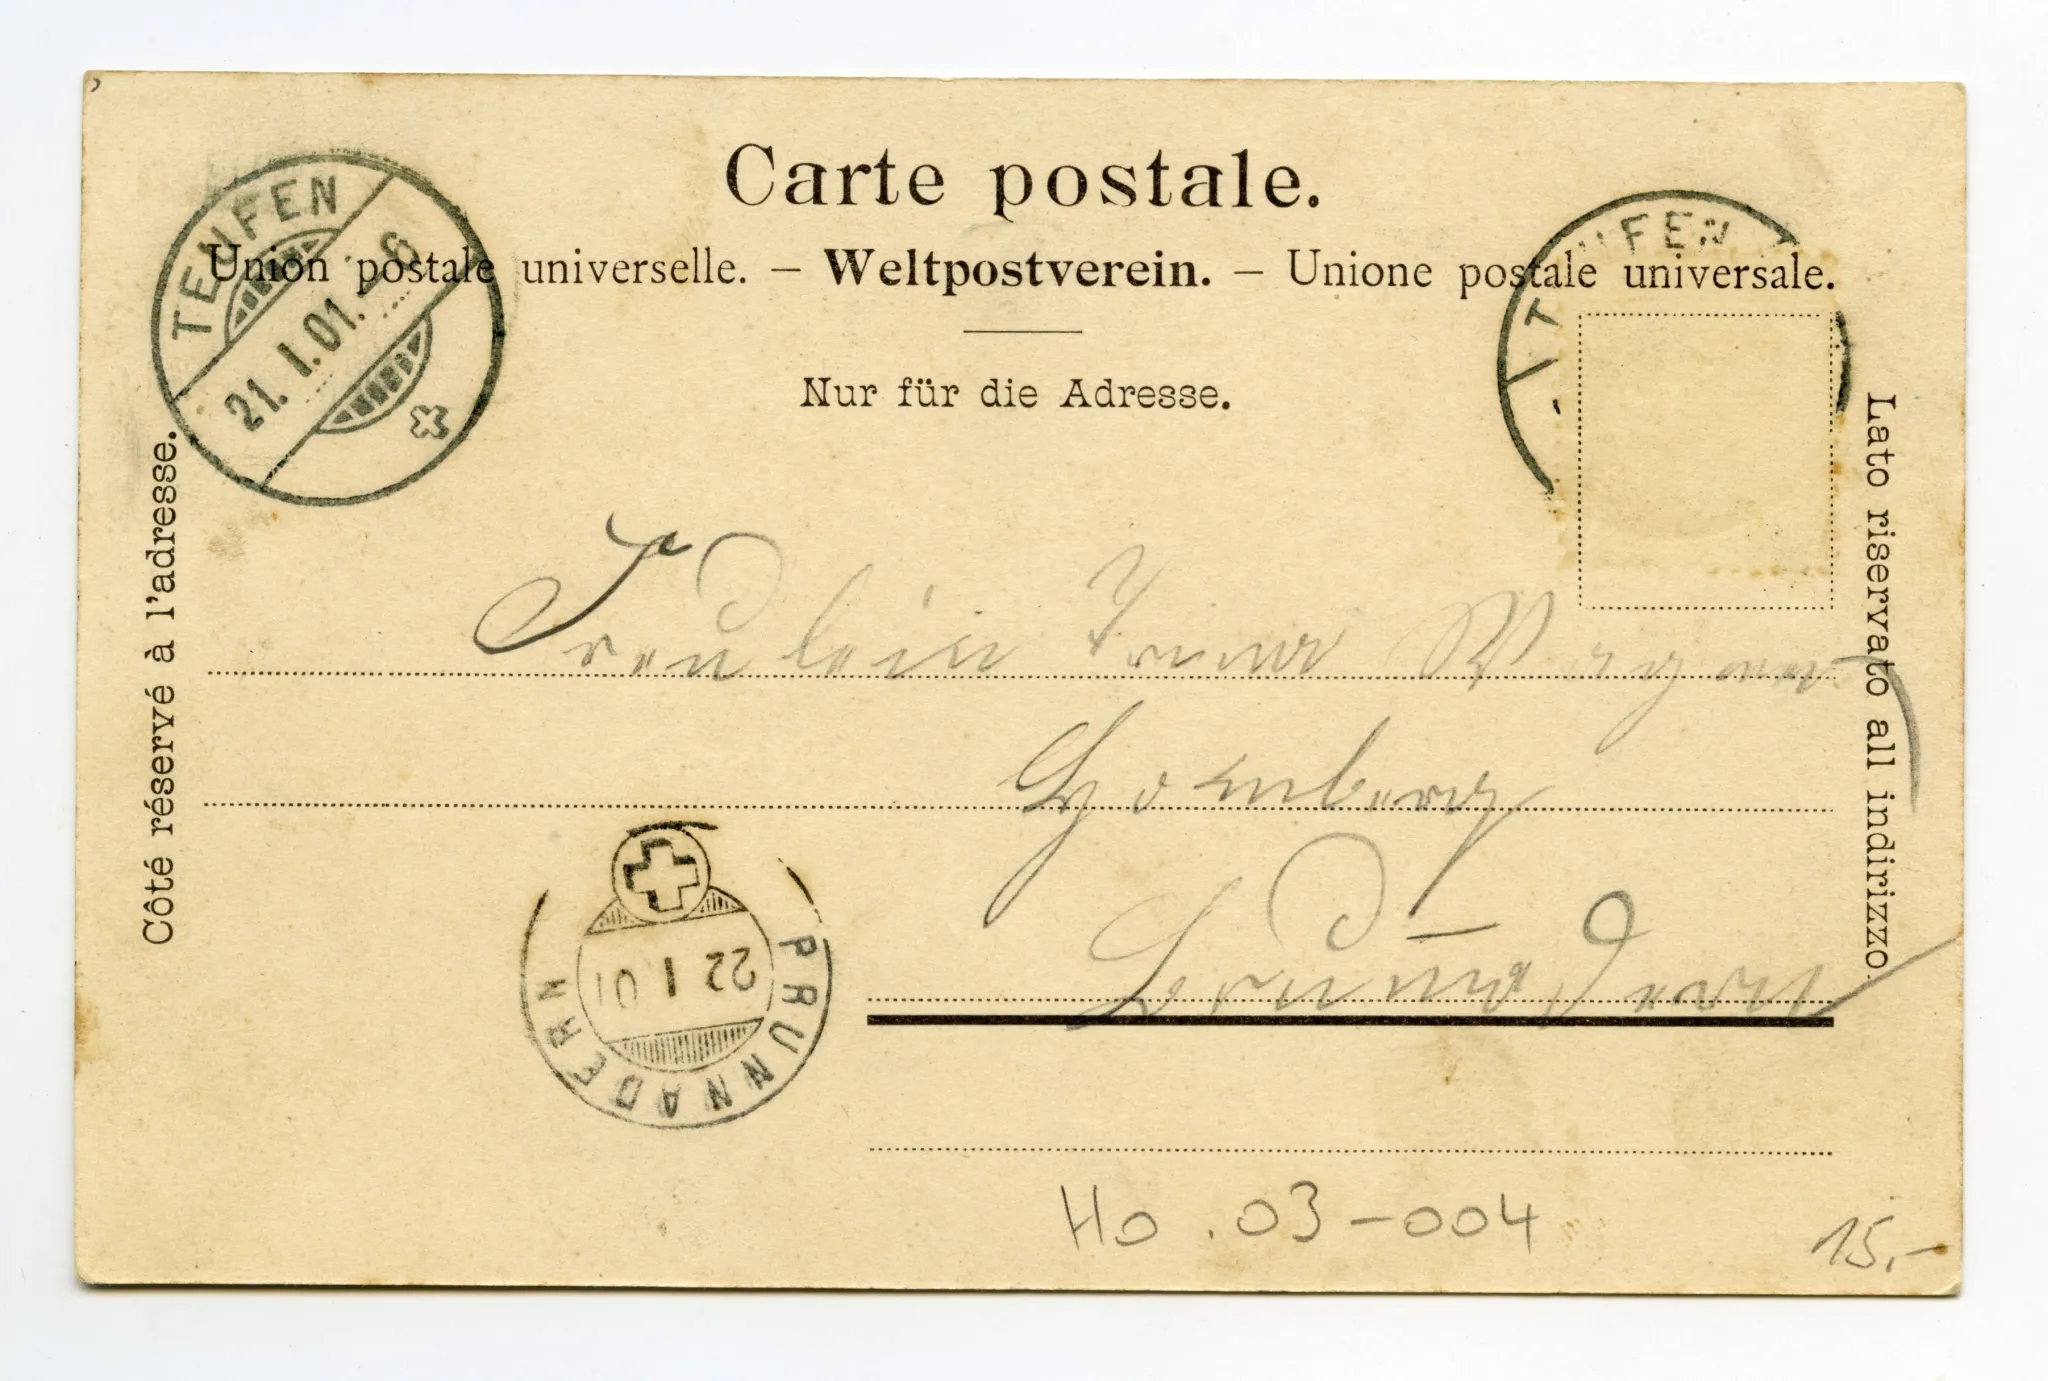 Carte postale.
Union postale universelle. – Weltpostverein. – Unione postale universale.
Nur für die Adresse.
Côté réservé à l'adresse.
Lato riservato all indirizzo.
TEUFEN
21. I. 01. - 6
TEUFEN
Fräulein
Homberg
Brunnadern
PRUNNADERN
22 I 01
Ho . 03-004
15.-